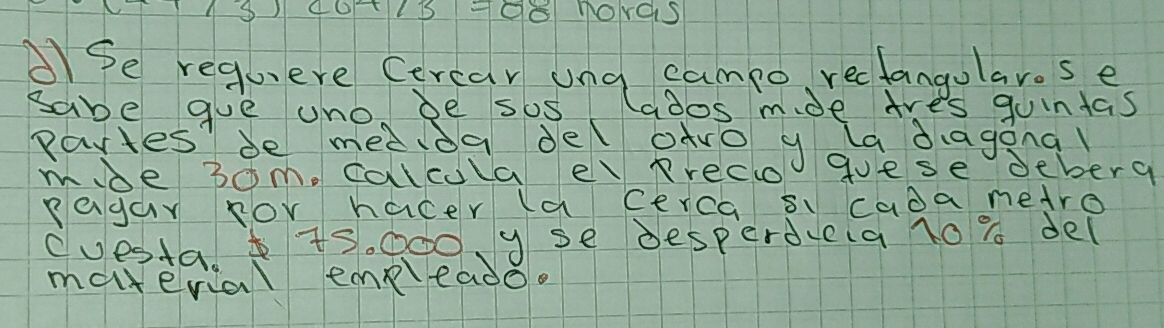 /3) 20+13 = 88 horas
d) Se requiere Cercar una campo rectangular. Se
sabe que uno de sus lados mide tres quintas
partes de medida del otro y la diagonal
mide 30m. Calcula el Precio que se debera
pagar por hacer la cerca si cada metro
cuesta. $ 75.000 y se desperdicia 10% del
material empleado.